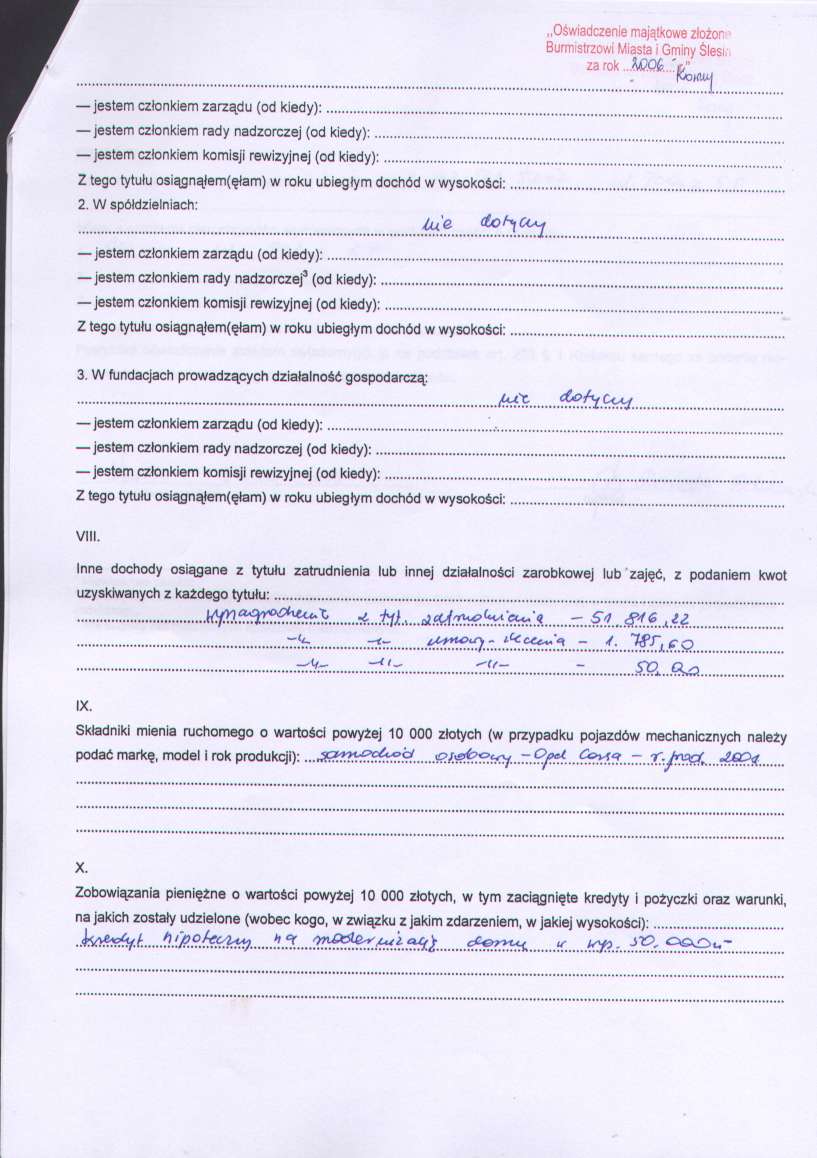 „Oświadczenie majątkowe złożone
Burmistrzowi Miasta i Gminy Ślesin
za rok ...2006..."
— jestem członkiem zarządu (od kiedy):
— jestem członkiem rady nadzorczej (od kiedy):
— jestem członkiem komisji rewizyjnej (od kiedy):
Z tego tytułu osiągnąłem(ęłam) w roku ubiegłym dochód w wysokości:
2. W spółdzielniach:
nie dotyczy
— jestem członkiem zarządu (od kiedy):
— jestem członkiem rady nadzorczej³ (od kiedy):
— jestem członkiem komisji rewizyjnej (od kiedy):
Z tego tytułu osiągnąłem(ęłam) w roku ubiegłym dochód w wysokości:
3. W fundacjach prowadzących działalność gospodarczą:
nie dotyczy
— jestem członkiem zarządu (od kiedy):
— jestem członkiem rady nadzorczej (od kiedy):
— jestem członkiem komisji rewizyjnej (od kiedy):
Z tego tytułu osiągnąłem(ęłam) w roku ubiegłym dochód w wysokości:
VIII.
Inne dochody osiągane z tytułu zatrudnienia lub innej działalności zarobkowej lub zajęć, z podaniem kwot
uzyskiwanych z każdego tytułu:
wynagrodzenie z tyt. zatrudnienia - 51 816,22
-"- -"- umowy-zlecenia - 1.785,60
-"- -"- -"- - 50,00
IX.
Składniki mienia ruchomego o wartości powyżej 10 000 złotych (w przypadku pojazdów mechanicznych należy
podać markę, model i rok produkcji): samochód osobowy - Opel Corsa - r. prod.
X.
Zobowiązania pieniężne o wartości powyżej 10 000 złotych, w tym zaciągnięte kredyty i pożyczki oraz warunki,
na jakich zostały udzielone (wobec kogo, w związku z jakim zdarzeniem, w jakiej wysokości):
kredyt hipoteczny na modernizację domu w wys. 50.000,-